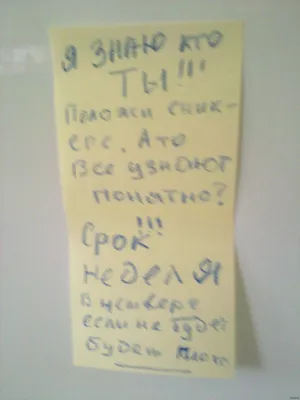 Я ЗНАЮ КТО
ТЫ!!!
Положи сник-
ерс. А то
Все узнают
понятно?
!!!
Срок
неделя
В четверг
если не будет
будет плохо